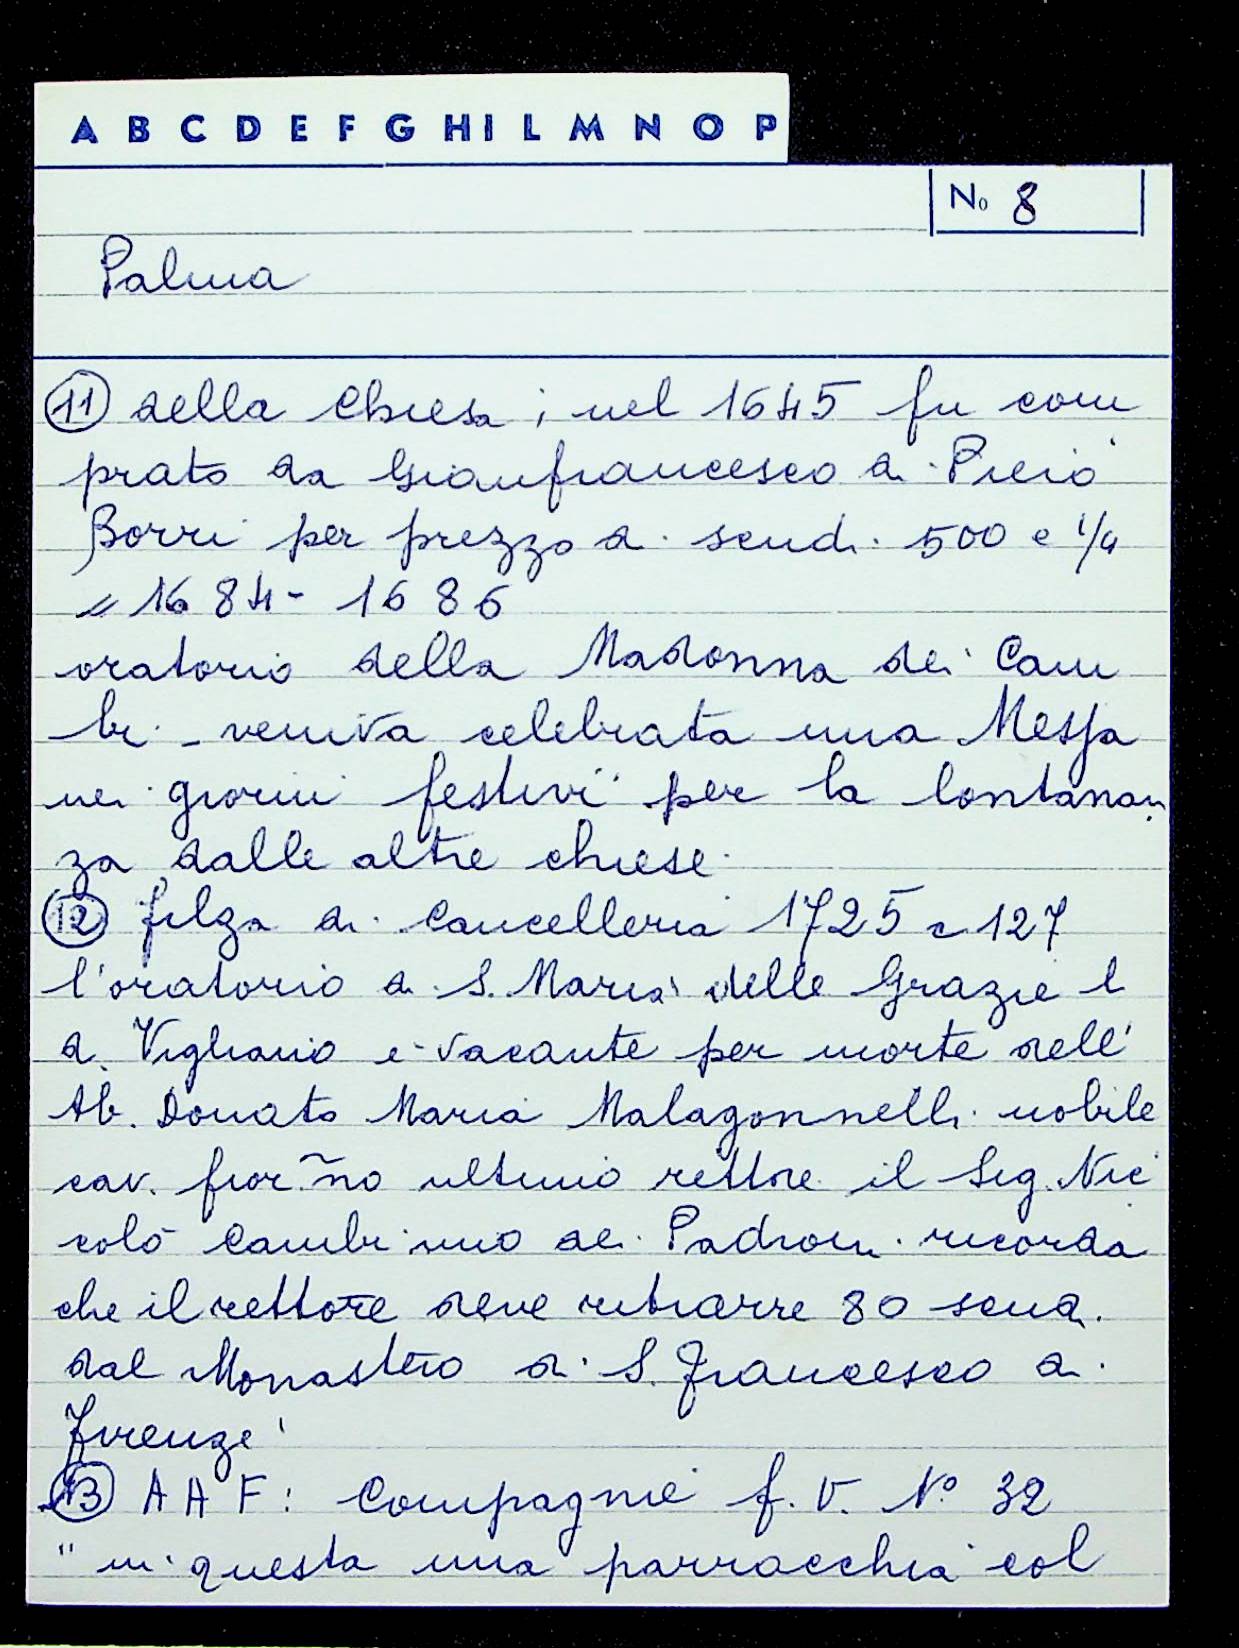 A B C D E F G H I L M N O P
No 8
Palma
11 della Chiesa ; nel 1645 fu com
prato da Gianfrancesco di Piero
Borri per prezzo di scudi 500 e 1/4
1684 - 1686
oratorio della Madonna dei Cam
bi - veniva celebrata una Messa
nei giorni festivi per la lontanan
za dalle altre chiese.
12 filza di Cancelleria 1725 c 127
l'oratorio di S. Maria delle Grazie
a Vigliano è vacante per morte dell'
Ab. Donato Maria Malagonnelli nobile
cav. fior.no ultimo rettore il Sig. Nic
colò Cambi uno dei Padroni ricorda
che il rettore deve ritrarre 80 scud.
dal Monastero di S. Francesco di
Firenze
13 A A F : Compagnie f. V. N° 32
" in questa una parracchia col